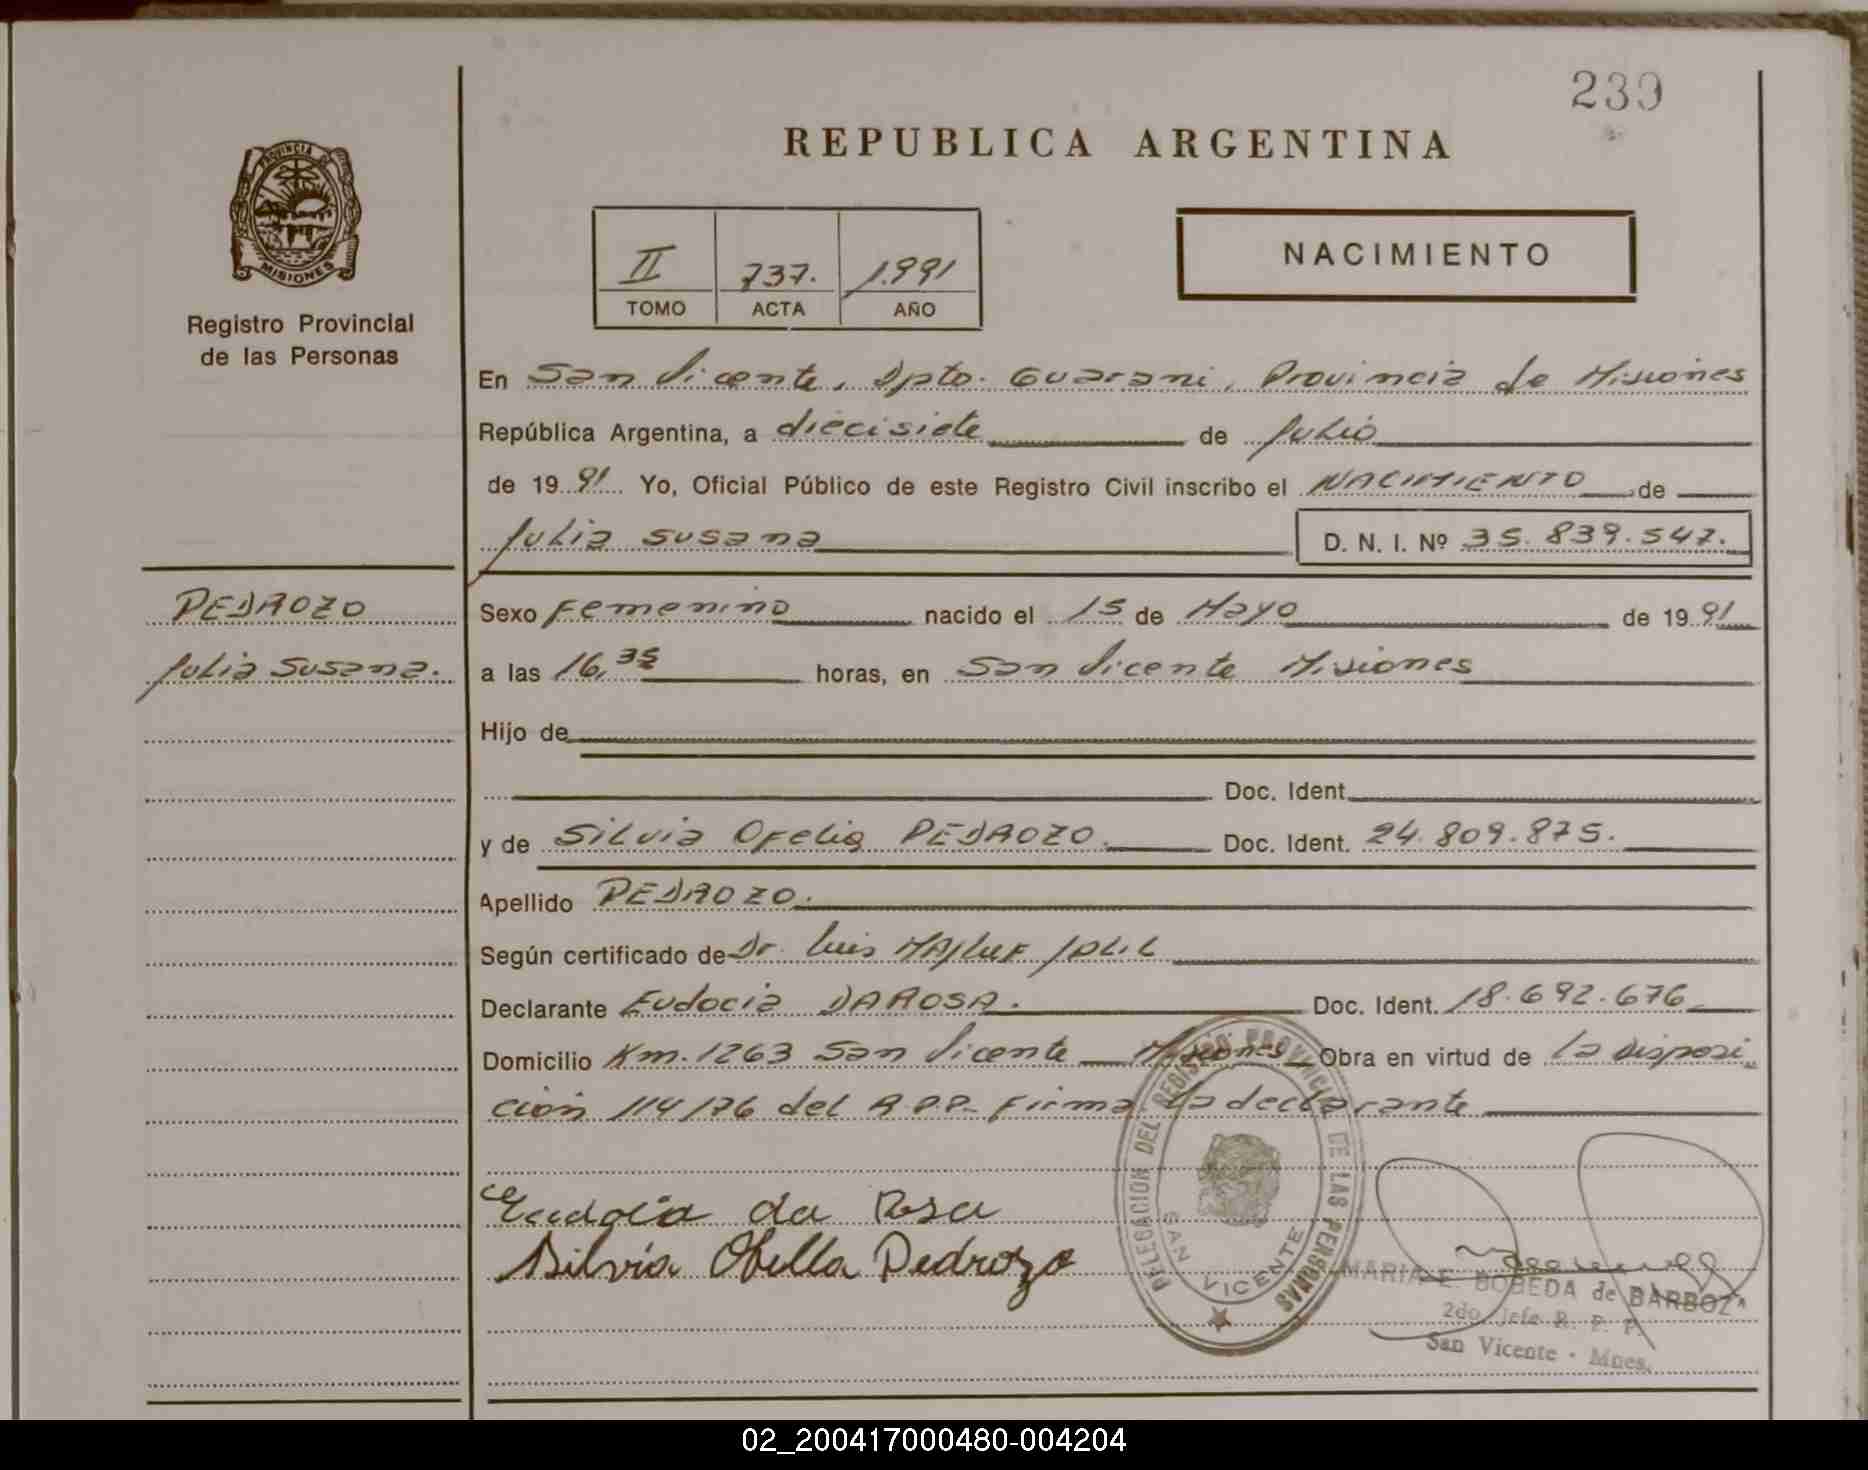 239
REPUBLICA ARGENTINA
PROVINCIA DE
MISIONES
Registro Provincial
de las Personas
II 737. 1.991
TOMO ACTA AÑO
NACIMIENTO
En San Vicente, Dpto. Guarani, Provincia de Misiones
República Argentina, a diecisiete de Julio
de 1991 Yo, Oficial Público de este Registro Civil inscribo el NACIMIENTO de
Julia Susana D. N. I. Nº 35.839.547.
PEDROZO
Julia Susana.
Sexo Femenino nacido el 15 de Mayo de 1991
a las 16,35 horas, en San Vicente Misiones
Hijo de
Doc. Ident.
y de Silvia Ofelia PEDROZO. Doc. Ident. 24.809.875.
Apellido PEDROZO.
Según certificado de Dr. Luis
Declarante Eudocia DAROSA. Doc. Ident. 18.692.676
Domicilio Km. 1263 San Vicente Misiones Obra en virtud de la disposi
ción 114/76 del R.P.P. Firma la declarante
Eudocia da Rosa
Silvia Ofelia Pedrozo
DELEGACION DEL REGISTRO PROVINCIAL DE LAS PERSONAS
SAN VICENTE
MARIA E. BOBEDA de BARBOZA
2do. Jefe R. P. P.
San Vicente - Mnes.
02_200417000480-004204